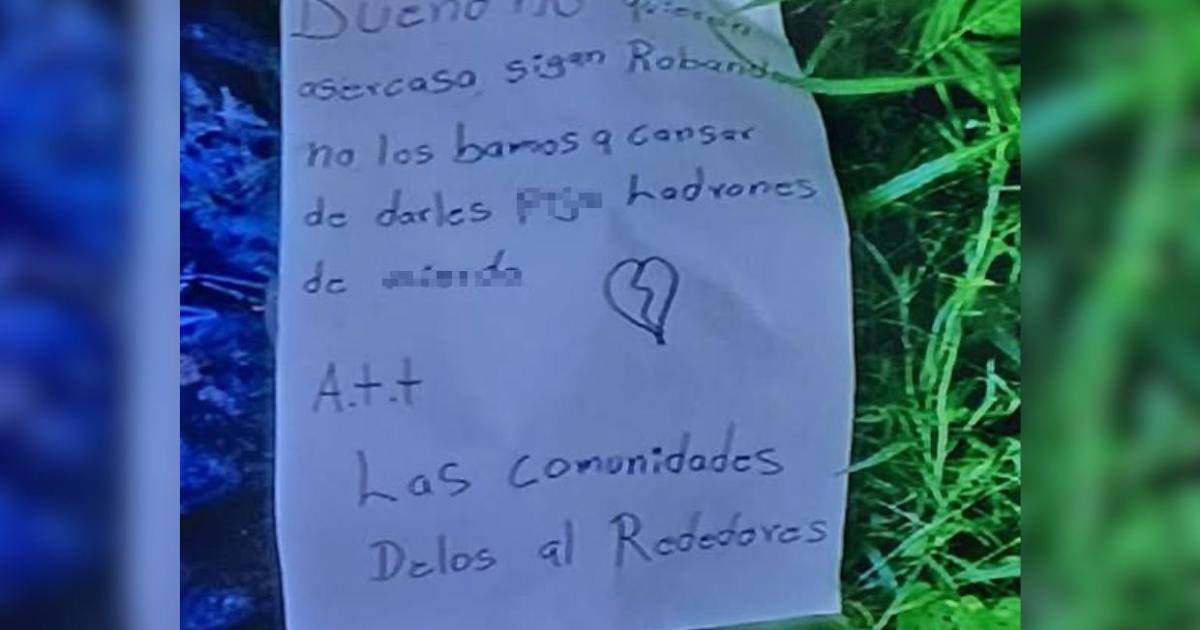 Dueno no quieren
asercaso sigen Robando
no los bamos a cansar
de darles Ladrones
de
A.t.t
Las Comunidades
Delos al Rededores